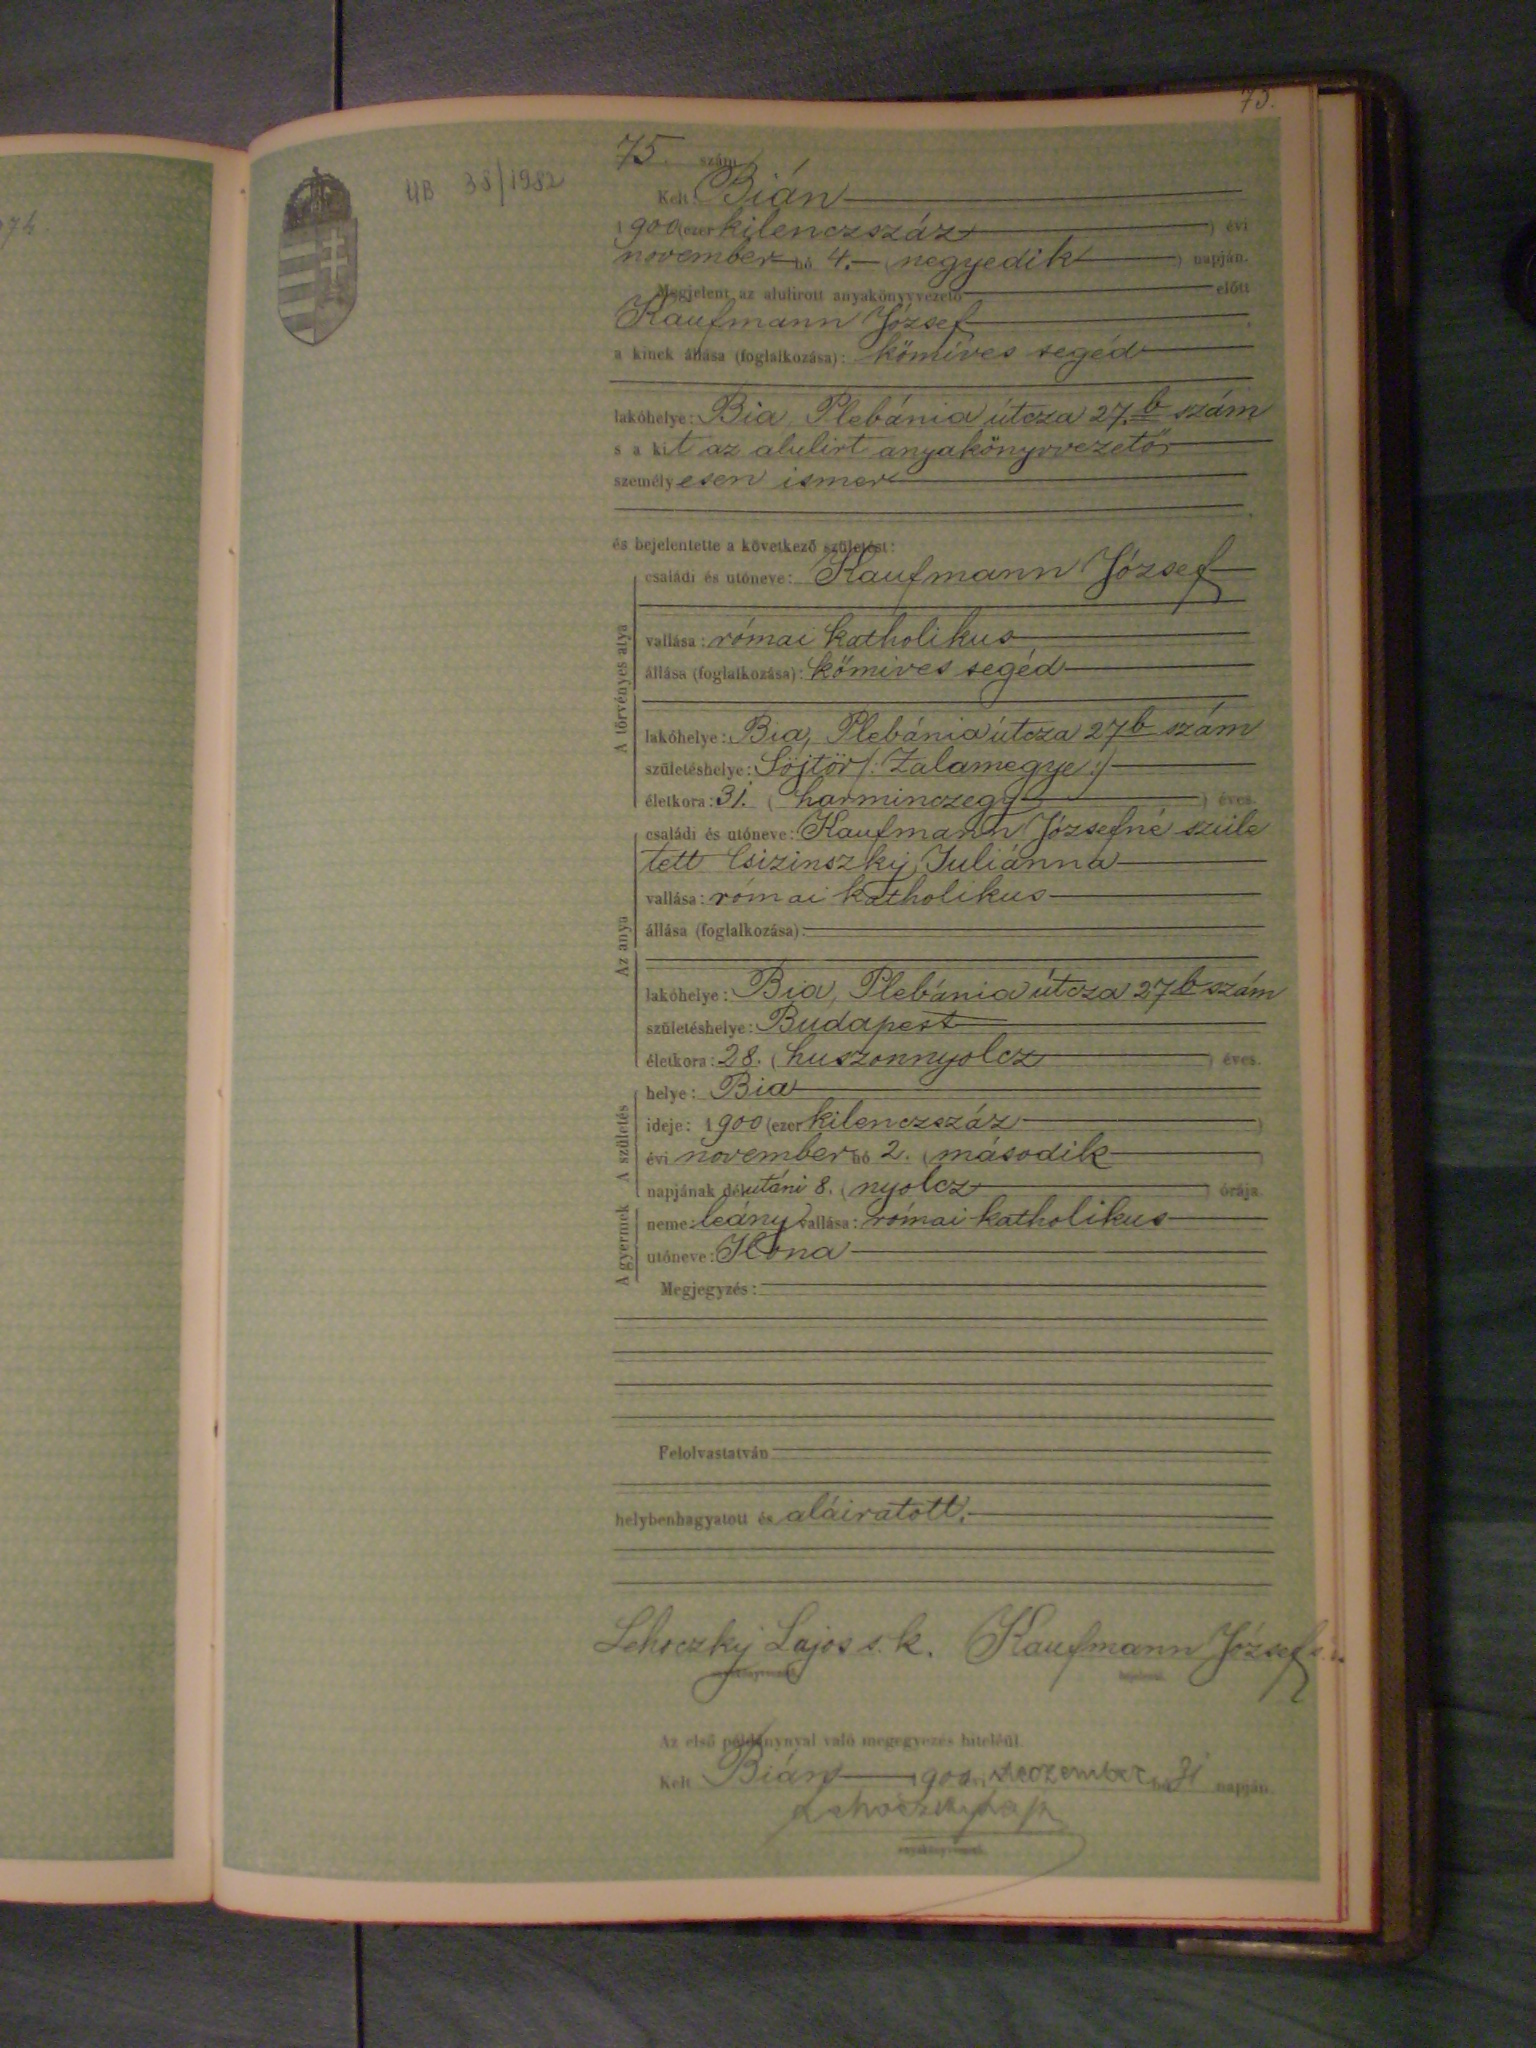 73.
74.
75. szám
UB 38/1982
Kelt Bián
1900 (ezer kilenczszáz) évi
november hó 4. (negyedik) napján.
Megjelent az alulirott anyakönyvvezető előtt
Kaufmann József
a kinek állása (foglalkozása): kőmíves segéd
lakóhelye: Bia, Plebánia útcza 27. b szám
s a kit az alulirt anyakönyvvezető
személyesen ismer
és bejelentette a következő születést:
A törvényes atya
családi és utóneve: Kaufmann József
vallása: római katholikus
állása (foglalkozása): kőmives segéd
lakóhelye: Bia, Plebánia útcza 27 b szám
születéshelye: Söjtör /: Zalamegye :/
életkora: 31. (harminczegy) éves.
Az anya
családi és utóneve: Kaufmann Józsefné szüle
tett Csizinszky Juliánna
vallása: római katholikus
állása (foglalkozása):
lakóhelye: Bia, Plebánia útcza 27 b szám
születéshelye: Budapest
életkora: 28. (huszonnyolcz) éves.
A születés
helye: Bia
ideje: 1900 (ezer kilenczszáz)
évi november hó 2. (második)
napjának délutáni 8. (nyolcz) órája.
A gyermek
neme: leány vallása: római katholikus
utóneve: Ilona
Megjegyzés:
Felolvastatván
helybenhagyatott és aláiratott.
Lehoczky Lajos s. k. Kaufmann József s.
Az első példánynyal való megegyezés hiteléül.
Kelt Bián 1900 évi deczember hó 31 napján
Lehoczky Lajos